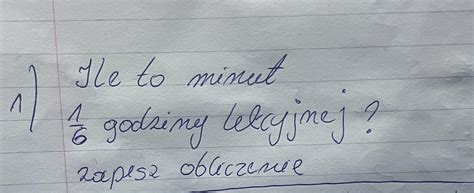 1) Ile to minut
1/6 godziny lekcyjnej?
zapisz obliczenie